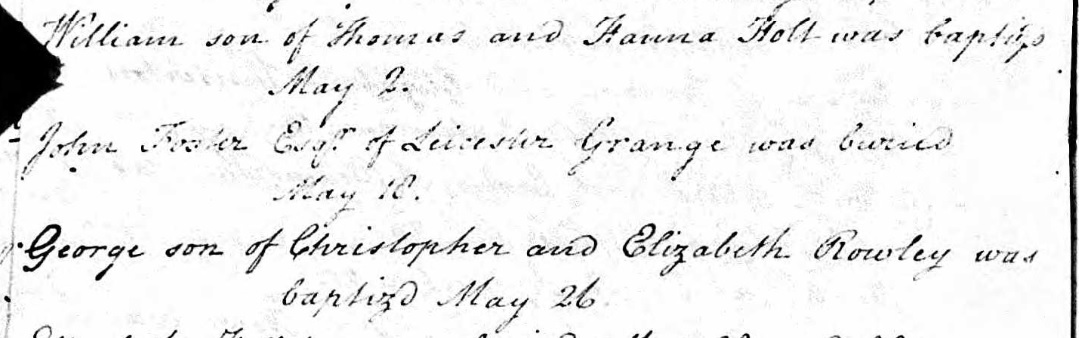 William son of Thomas and Hanna Holt was baptiz'd
May 2.
John Foster Esqr. of Leicester Grange was buried
May 18.
George son of Christopher and Elizabeth Rowley was
baptiz'd May 26